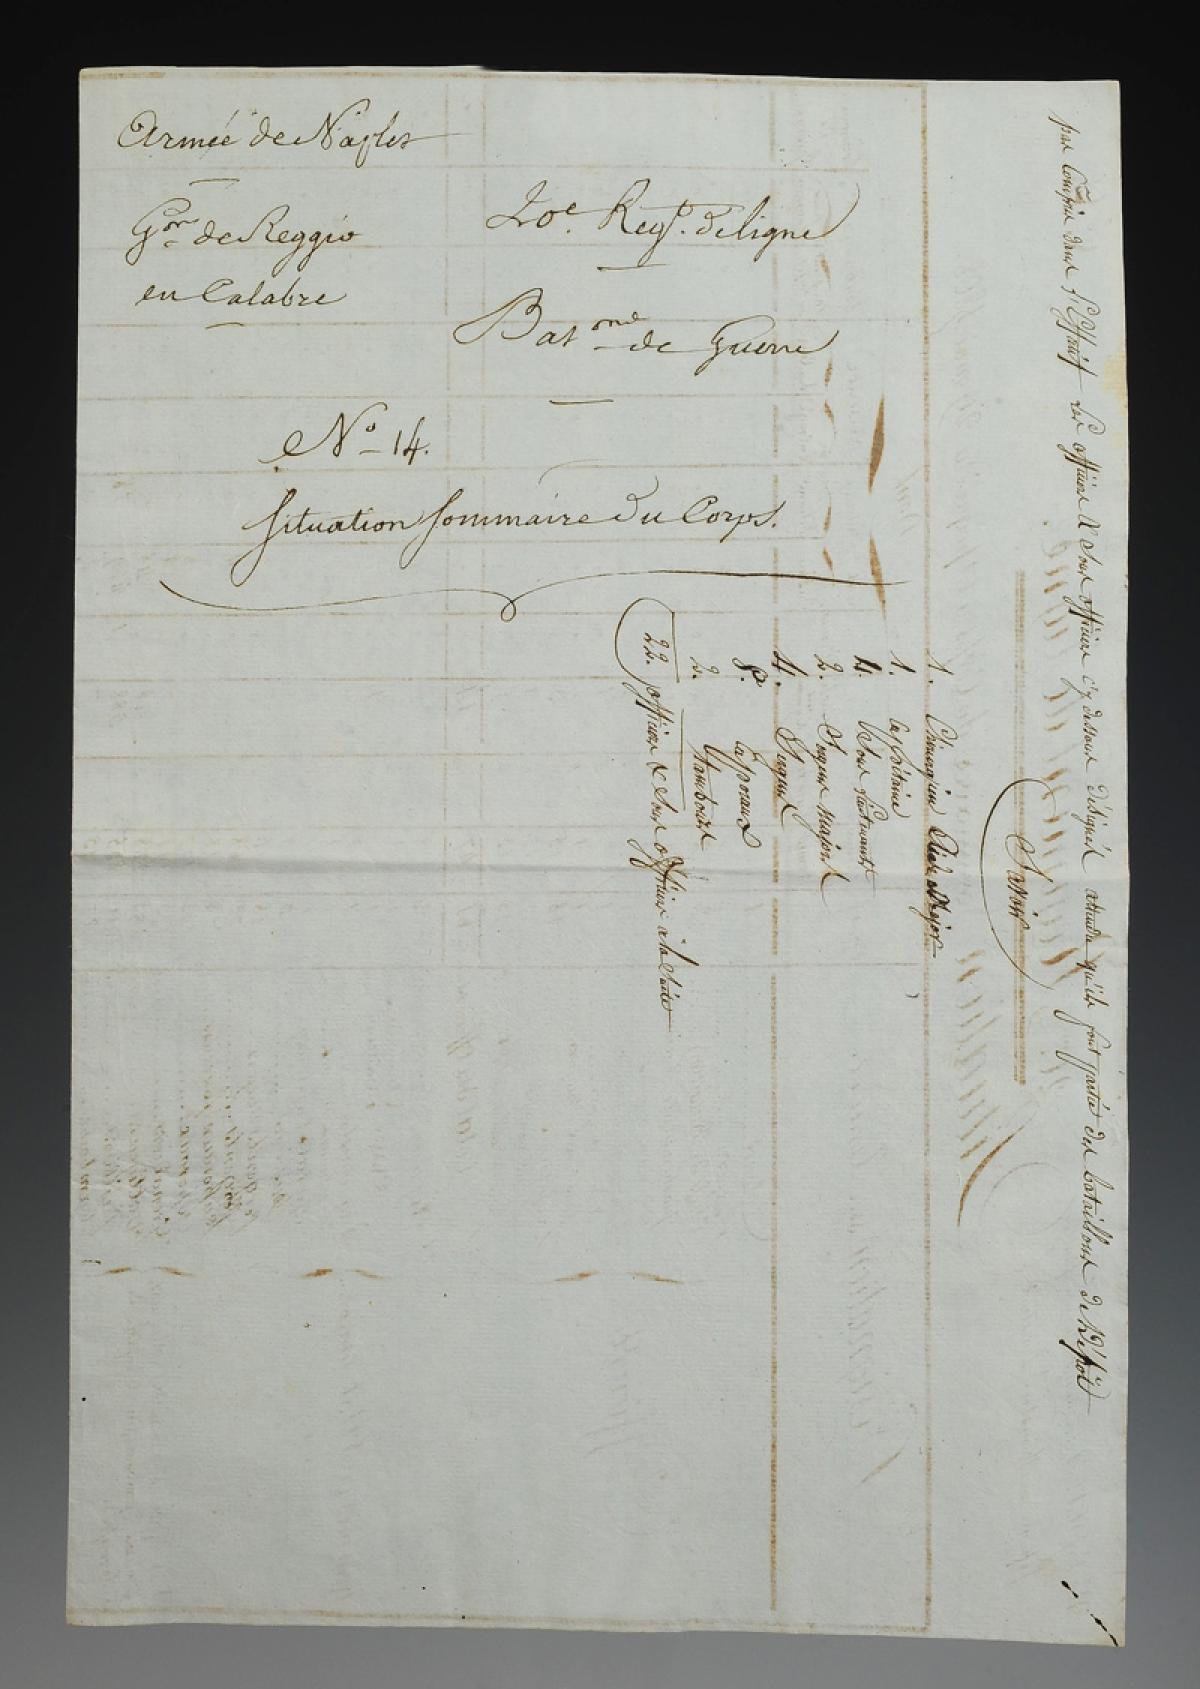 Armée de Naples
Gon de Reggio
en Calabre
20e. Regt. de ligne
Baton de Guerre
No 14.
Situation Sommaire du Corps.
pas Compris dans l'Effectif les officiers & Sous officiers cy dessous désignés attendu qu'ils font partie des bataillons de Dépôt
Savoir
1. Chirurgien Aide Major
1. Capitaine
4. Sous lieutenants
2. Sergens Majors
4. Sergens
8. Caporaux
2. Tambours
22. officiers & Sous officiers à la Suite